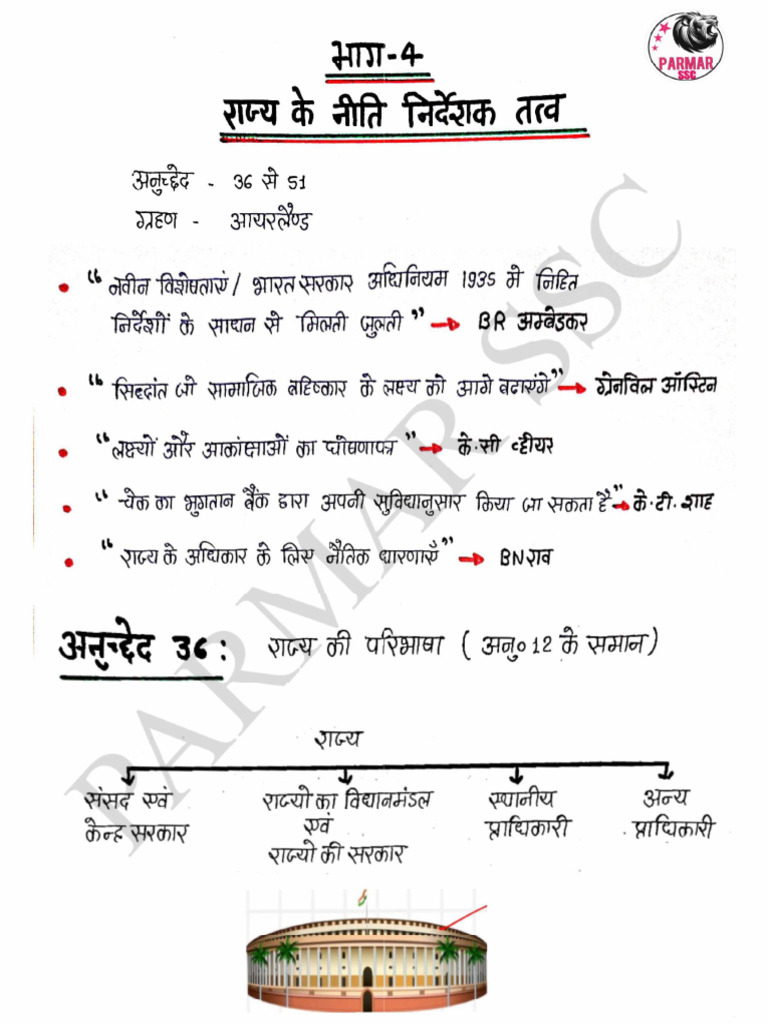 PARMAR
SSC
भाग-4
राज्य के नीति निर्देशक तत्व
अनुच्छेद - 36 से 51
ग्रहण - आयरलैण्ड
• “नवीन विशेषताएं / भारत सरकार अधिनियम 1935 मे निहित
निर्देशों के साधन से मिलती जुलती” → BR अम्बेडकर
• “सिद्दांत जो सामाजिक बहिष्कार के लक्ष्य को आगे बढाएंगे” → ग्रेनविल ऑस्टिन
• “लक्ष्यों और आकांक्षाओं का घोषणापत्र” → के.सी व्हीयर
• “चेक का भुगतान बैंक द्वारा अपनी सुविधानुसार किया जा सकता है” → के.टी.शाह
• “राज्य के अधिकार के लिए नैतिक धारणाएँ” → BN राव
अनुच्छेद 36: राज्य की परिभाषा ( अनु० 12 के समान)
राज्य
संसद एवं राज्यो का विधानमंडल स्थानीय अन्य
केन्द्र सरकार एवं प्राधिकारी प्राधिकारी
राज्यो की सरकार
PARMAR SSC